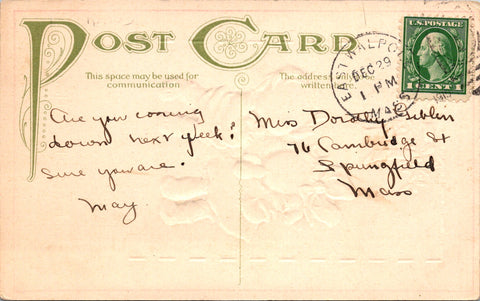 POST CARD
This space may be used for
communication
The address only to be
written here.
EAST WALPO
DEC 29
1 PM
MASS
U.S. POSTAGE
1 CENT 1
Are you coming
down next week?
Sure you are.
May.
Miss Dorothy
76 Cambridge St
Springfield
Mass